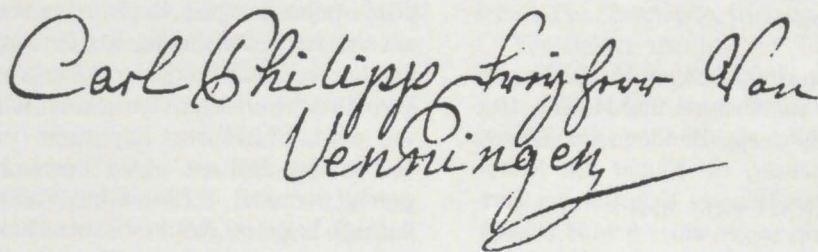 Carl Philipp Freyherr Von
Venningen